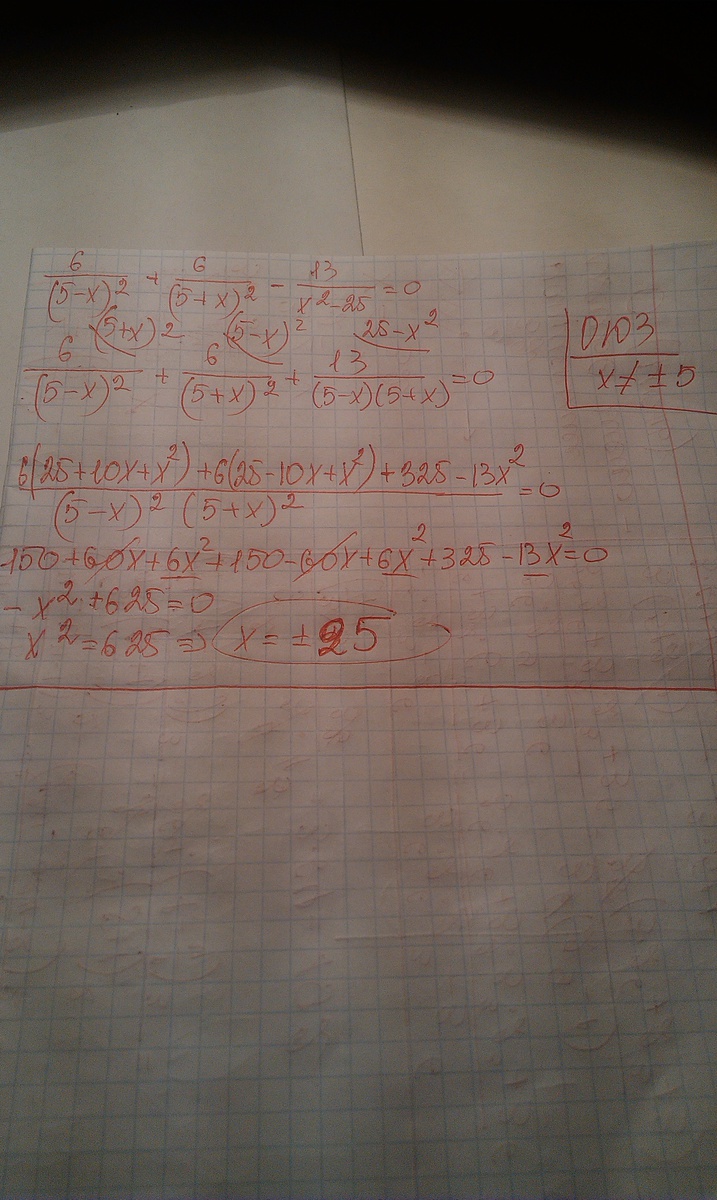 6/(5-x)² + 6/(5+x)² - 13/(x²-25) = 0
(5+x)² (5-x)² 25-x²
6/(5-x)² + 6/(5+x)² + 13/((5-x)(5+x)) = 0
ОДЗ
x≠±5
(6(25+10x+x²)+6(25-10x+x²)+325-13x²)/((5-x)² (5+x)²) = 0
150+60x+6x²+150-60x+6x²+325-13x²=0
-x²+625=0
x²=625 => x=±25